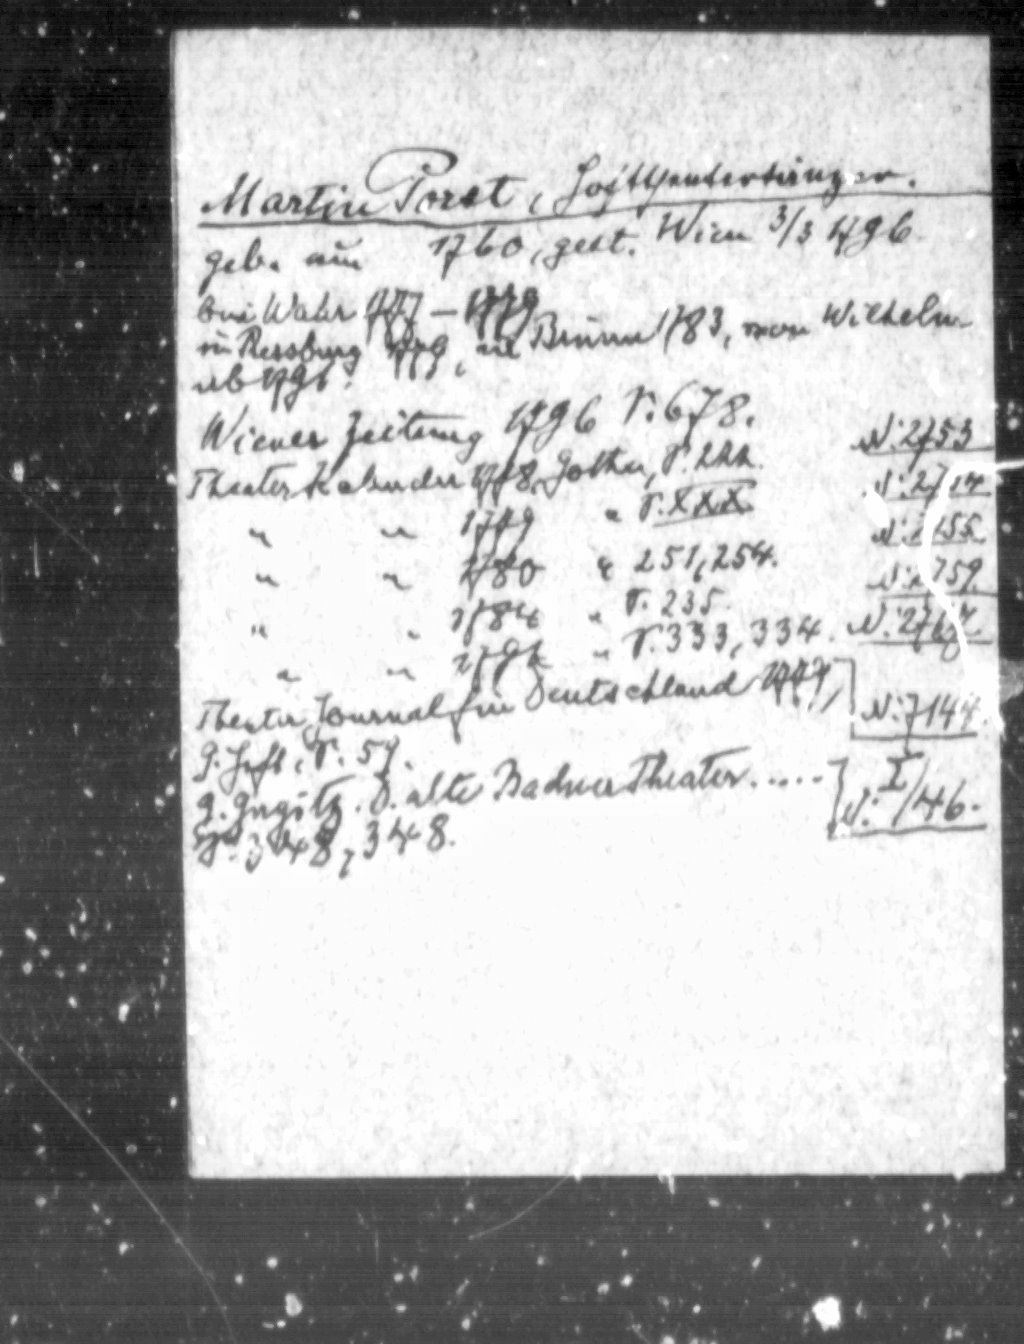 Martin Porst, Hoftheatersänger.
geb. um 1760, gest. Wien 3/3 1796
bei Wahr 1777 – 1779
in Pressburg 1779, in Brünn 1783, von Wilhelm
ab 1791.
Wiener Zeitung 1796 S. 678.
Theater Kalender 1778, Gotha, S. N: 2753
" " 1779 " S. XXX N:
" " 1780 " 251, 254. N: 2755
" " 1784 " S. 235. N: 2759
" " " S. 333, 334. N:
Theater Journal für Deutschland 1779, N: 7144.
9. Heft, S. 57.
D. alte Badner Theater ..... I/ N: 146.
S. 348.